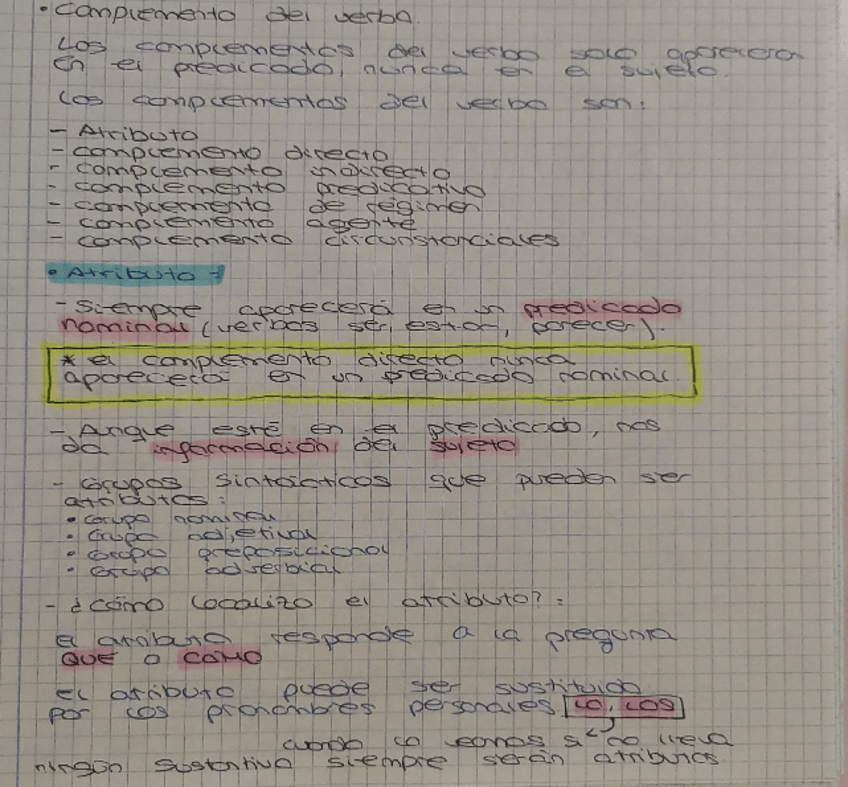 • Complemento del verbo.
Los complementos del verbo solo aparecen
en el predicado, nunca en el sujeto.
Los complementos del verbo son:
- Atributo
- complemento directo
- complemento indirecto
- complemento predicativo
- complemento de régimen
- complemento agente
- complemento circunstanciales
• Atributo →
- Siempre aparecerá en un predicado
nominal (verbos ser, estar, parecer).
* el complemento directo nunca
aparecera en un predicado nominal.
- Anque esté en el predicado, nos
da información del sujeto
- Grupos sintácticos que pueden ser
atributos:
• Grupo nominal
• Grupo adjetival
• Grupo preposicional
• Grupo adverbial
- ¿cómo localizo el atributo?:
el atributo responde a la pregunta
QUE o COMO
El atributo puede ser sustituido
por los pronombres personales lo, los
cuando lo veamos si no lleva
ningún sustantivo siempre serán atributos.